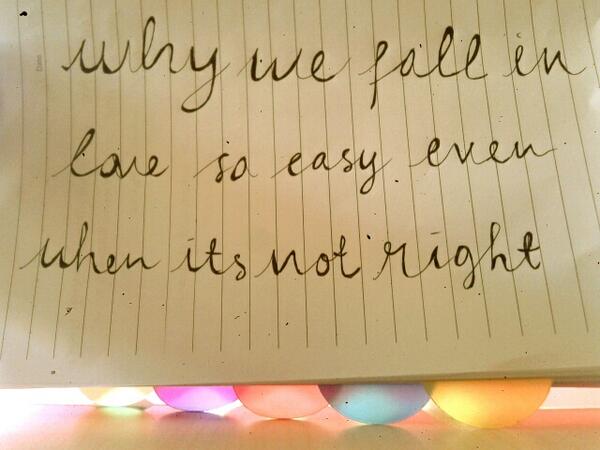 why we fall in
love so easy even
when its not right